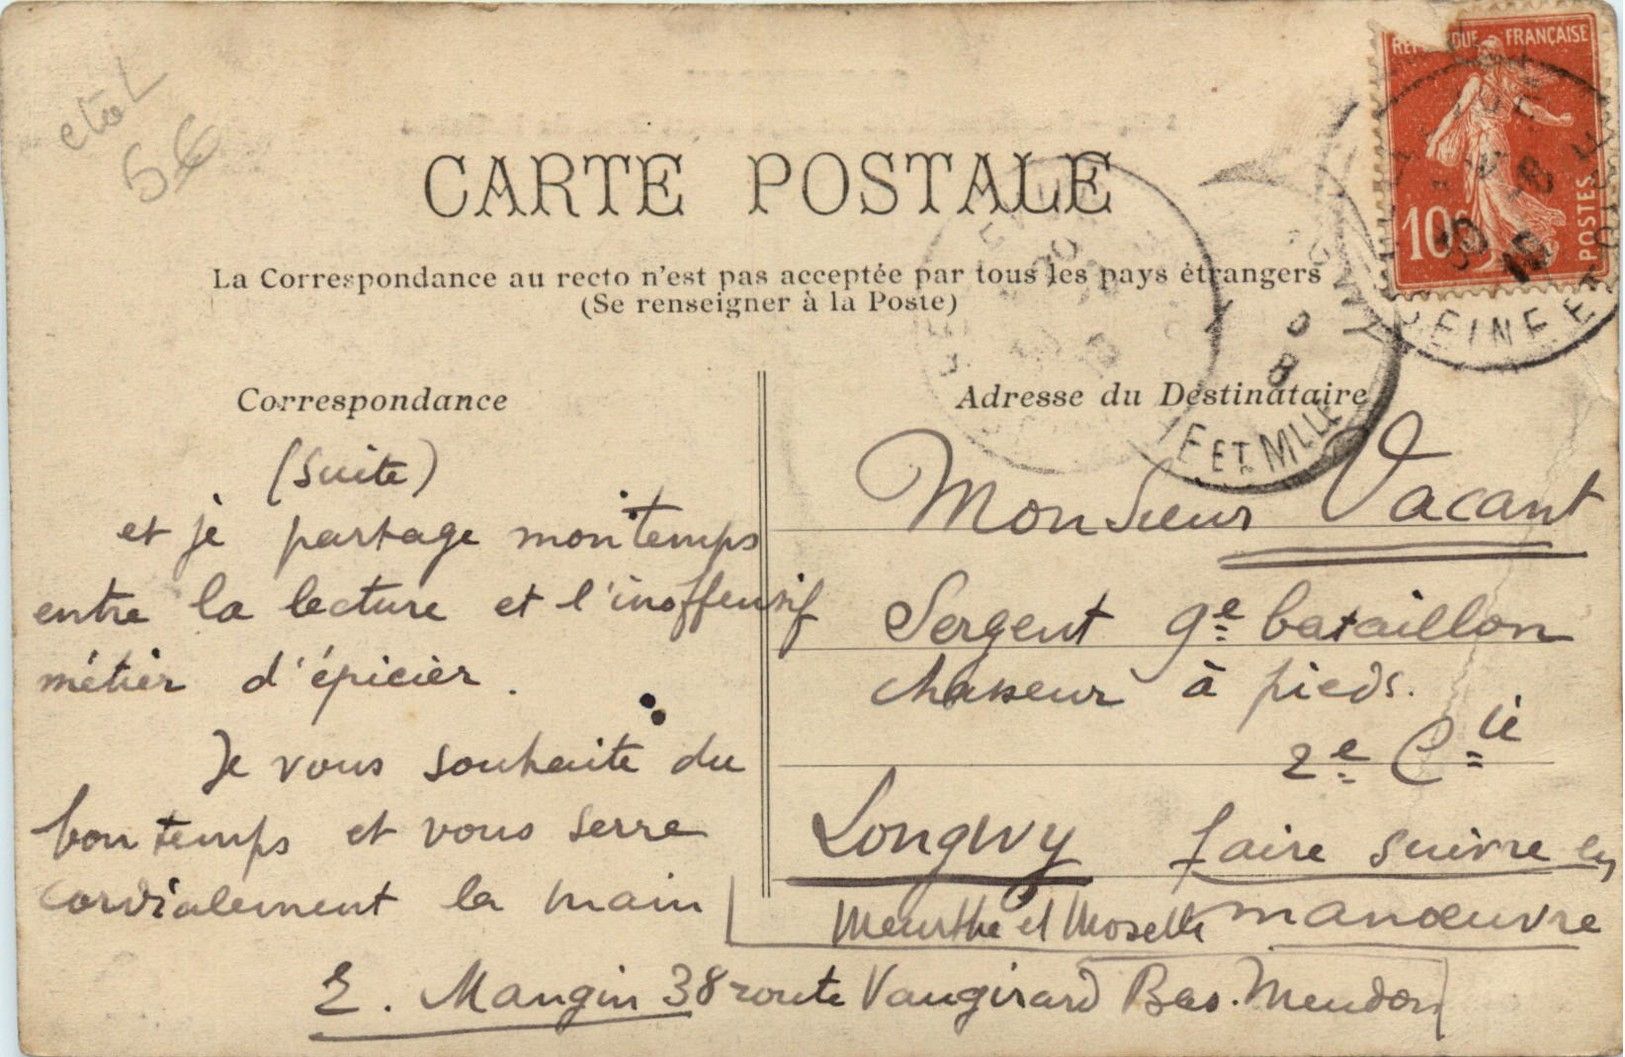 etaL
5€
CARTE POSTALE
La Correspondance au recto n'est pas acceptée par tous les pays étrangers
(Se renseigner à la Poste)
RÉPUBLIQUE FRANÇAISE
10
POSTES
SEINE ET OISE
ET MLLE
Correspondance
(Suite)
et je partage mon temps
entre la lecture et l'inoffensif
métier d'épicier.
Je vous souhaite du
bon temps et vous serre
cordialement la main
E. Mangin 38 route Vaugirard Bas. Meudon
Adresse du Destinataire
Monsieur Vacant
Sergent 9e bataillon
chasseur à pieds.
2e Cie
Longwy faire suivre en
Meurthe et Moselle manœuvre